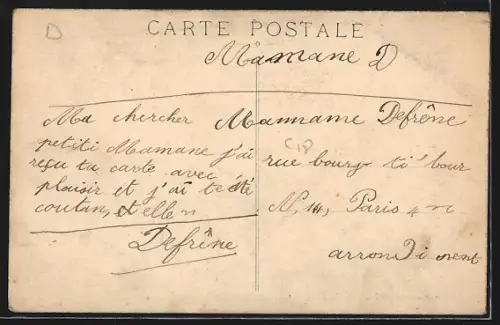 D
CARTE POSTALE
Mamane D
Ma chercher
petiti Mamane j'ai
reçu ta carte avec
plaisir et j'ai te été
coutan, et elle n
Defrêne
Manname Defrêne
CIP
rue bourg ti'bour
N, 14, Paris 4 m
arrondi nent